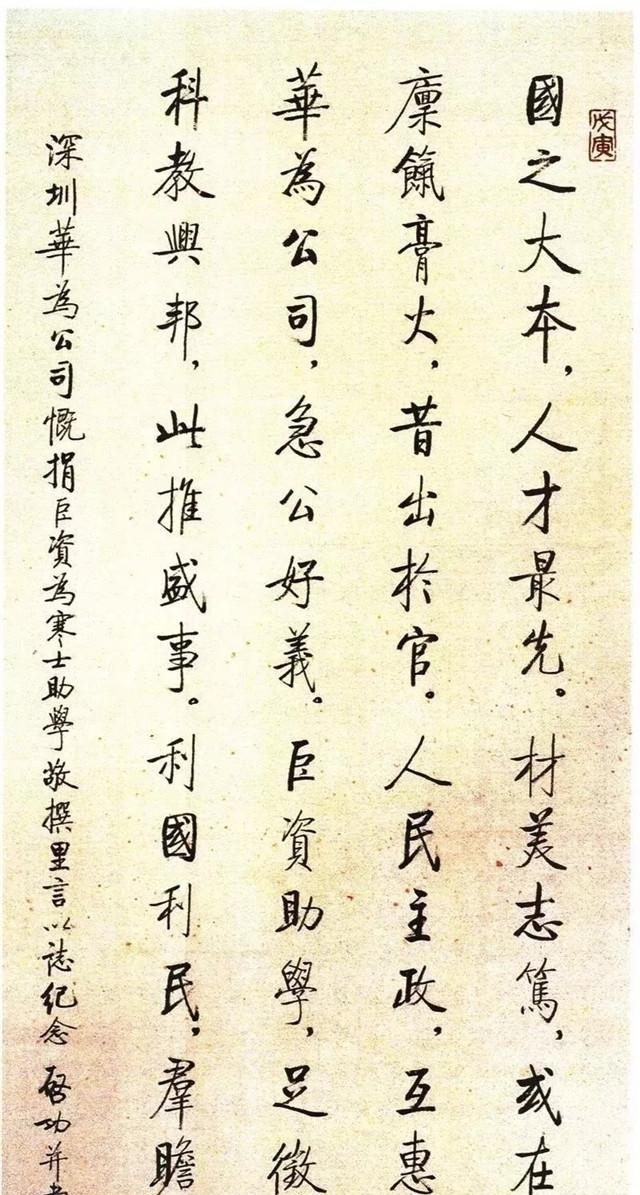 戊寅
國之大本，人才最先。材美志篤，或在
廩餼膏火，昔出於官。人民主政，互惠
華為公司，急公好義。巨資助學，足徵
科教興邦，此推盛事。利國利民，羣瞻
深圳華為公司慨捐巨資為寒士助學敬撰里言以誌紀念 啓功并